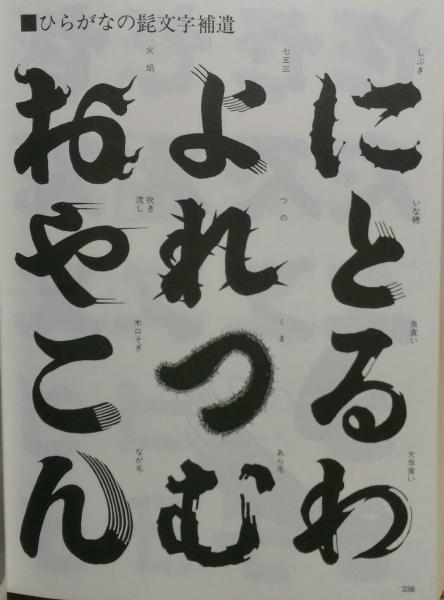 ■ひらがなの髭文字補遺
しぶき
に
いな穂
と
虫食い
る
大虫食い
わ
七五三
よ
つの
れ
くま
つ
あら毛
む
火焰
お
吹き流し
や
木口そぎ
こ
なが毛
ん
238